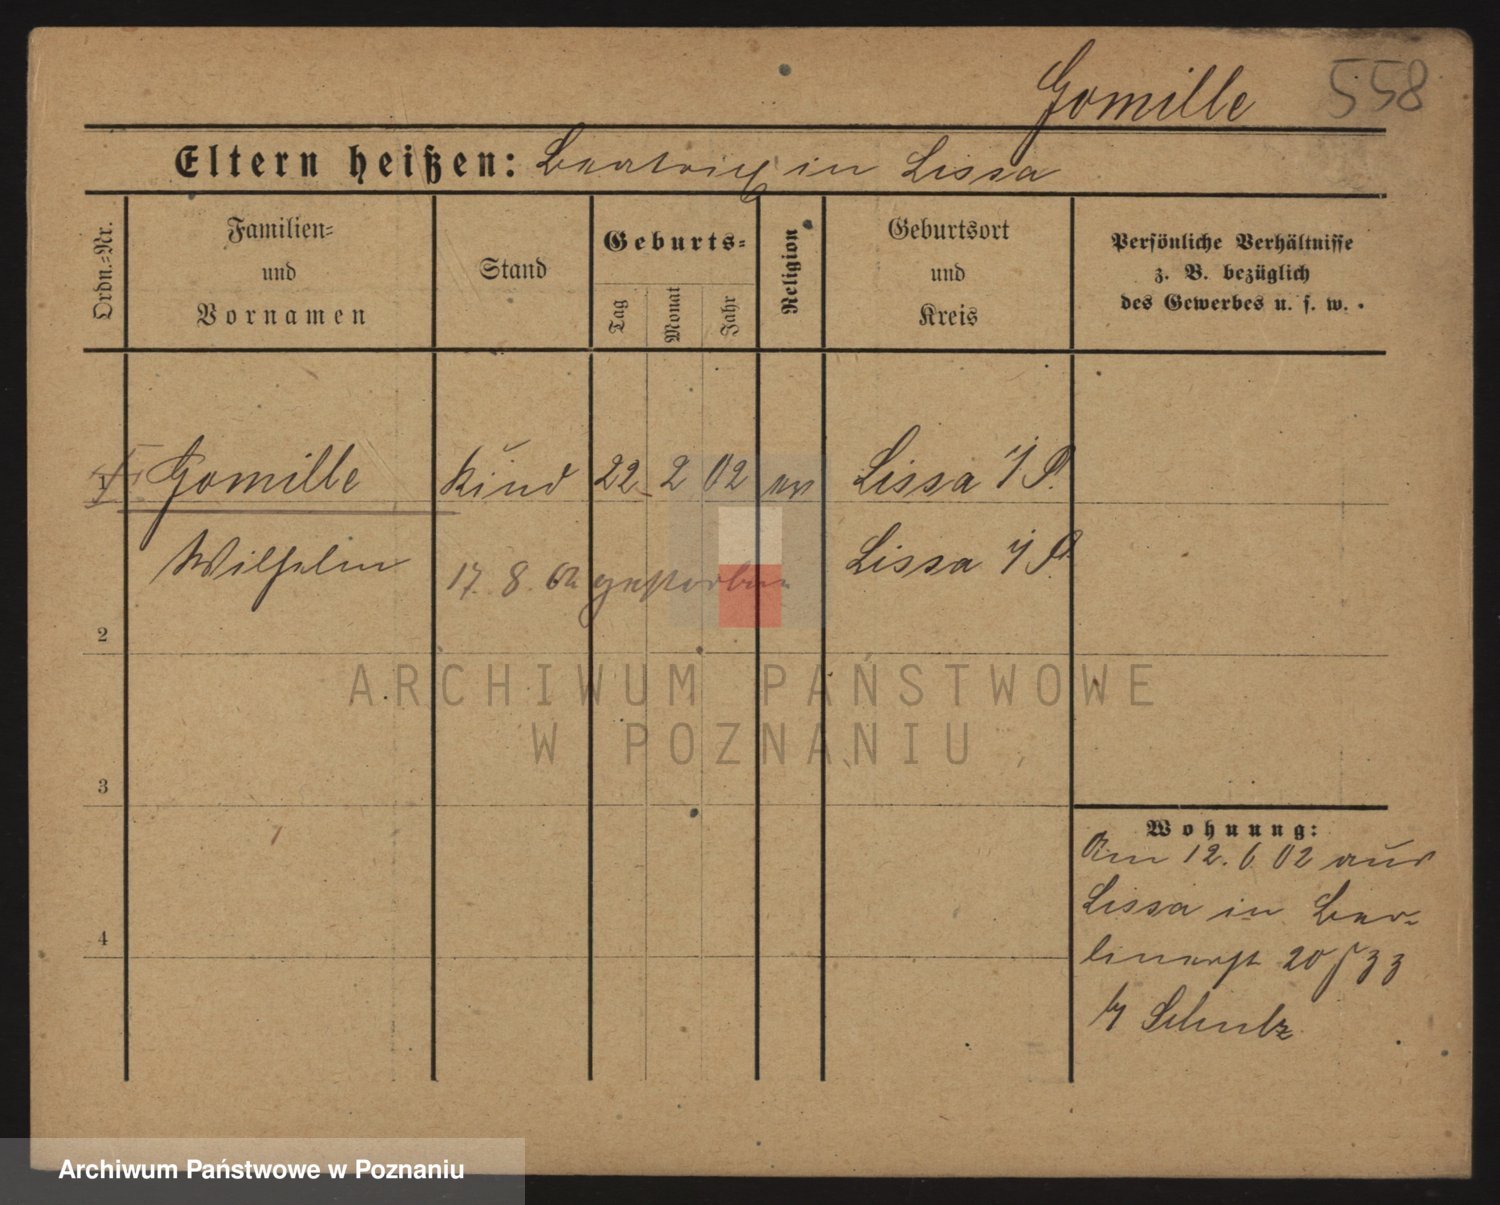 Gomille 558
Eltern heißen: Beatrix in Lissa
Ordn.=Nr.
Familien=
und
Vornamen
Stand
Geburts=
Tag
Monat
Jahr
Religion
Geburtsort
und
Kreis
Persönliche Verhältnisse
z. B. bezüglich
des Gewerbes u. s. w.
1 Gomille Kind 22 2 02 ev Lissa i/P.
Wilhelm 17. 8. 02 gestorben Lissa i/P.
2
3
4
Wohnung:
Am 12. 6 02 aus
Lissa in Ber=
linerst 20
b/ Schulz
ARCHIWUM PAŃSTWOWE
W POZNANIU
Archiwum Państwowe w Poznaniu